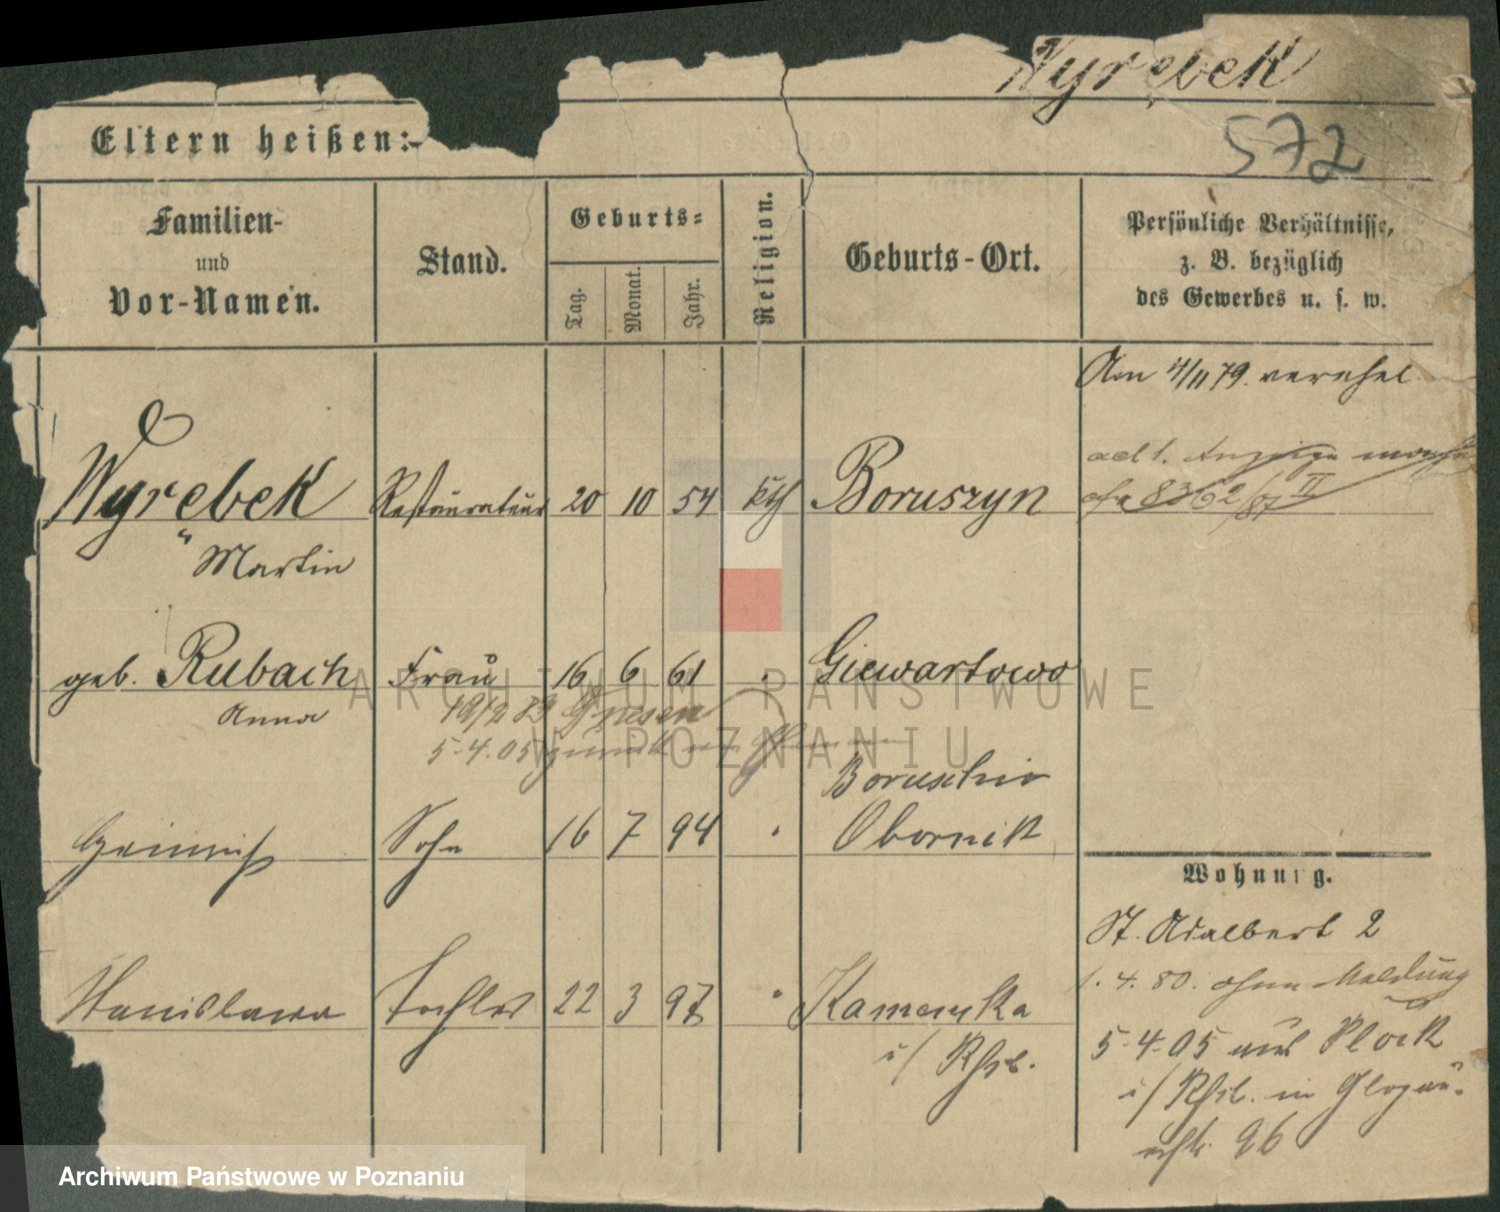 Wyrebek
572
Eltern heißen:
Familien-
und
Vor-Namen.
Stand.
Geburts-
Tag.
Monat.
Jahr.
Religion.
Geburts-Ort.
Persönliche Verhältnisse,
z. B. bezüglich
des Gewerbes u. s. w.
Am 4/11 79. verehel
Wyrebek Restaurateur 20 10 54 kth Boruszyn
ad 1. Anzeige
8362/87 II
Martin
geb. Rubach Frau 16 6 61 Giewartowo
Anna
19/2 83 Gnesen
5-4.05 zurück
Boruschin
Sohn 16 7 94 Obornik
Wohnung.
St. Adalbert 2
1.4.80. ohne Meldung
Stanislawa Tochter 22 3 97 Kamemka
i/ Rßl.
5-4-05 aus Plock
i/ Rßl. in Glogau-
erstr. 96
ARCHIWUM PAŃSTWOWE
W POZNANIU
Archiwum Państwowe w Poznaniu